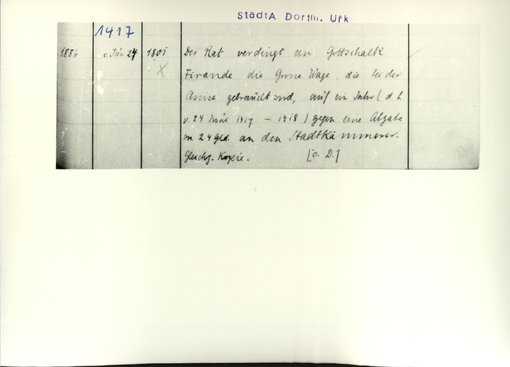 StadtA Dortm. Urk
1417
1886 v. Jun 24 1801 Der Rat verdingt an Gottschalk
die Grosse Wage, die bei der
gebraucht wird, auf ein Jahr (d. h.
v. 24 Juni 1417 - 1418) gegen eine Abgabe
von 24 gld. an den Stadtkämmerer.
Gleichz. Kopie. [o. D.]